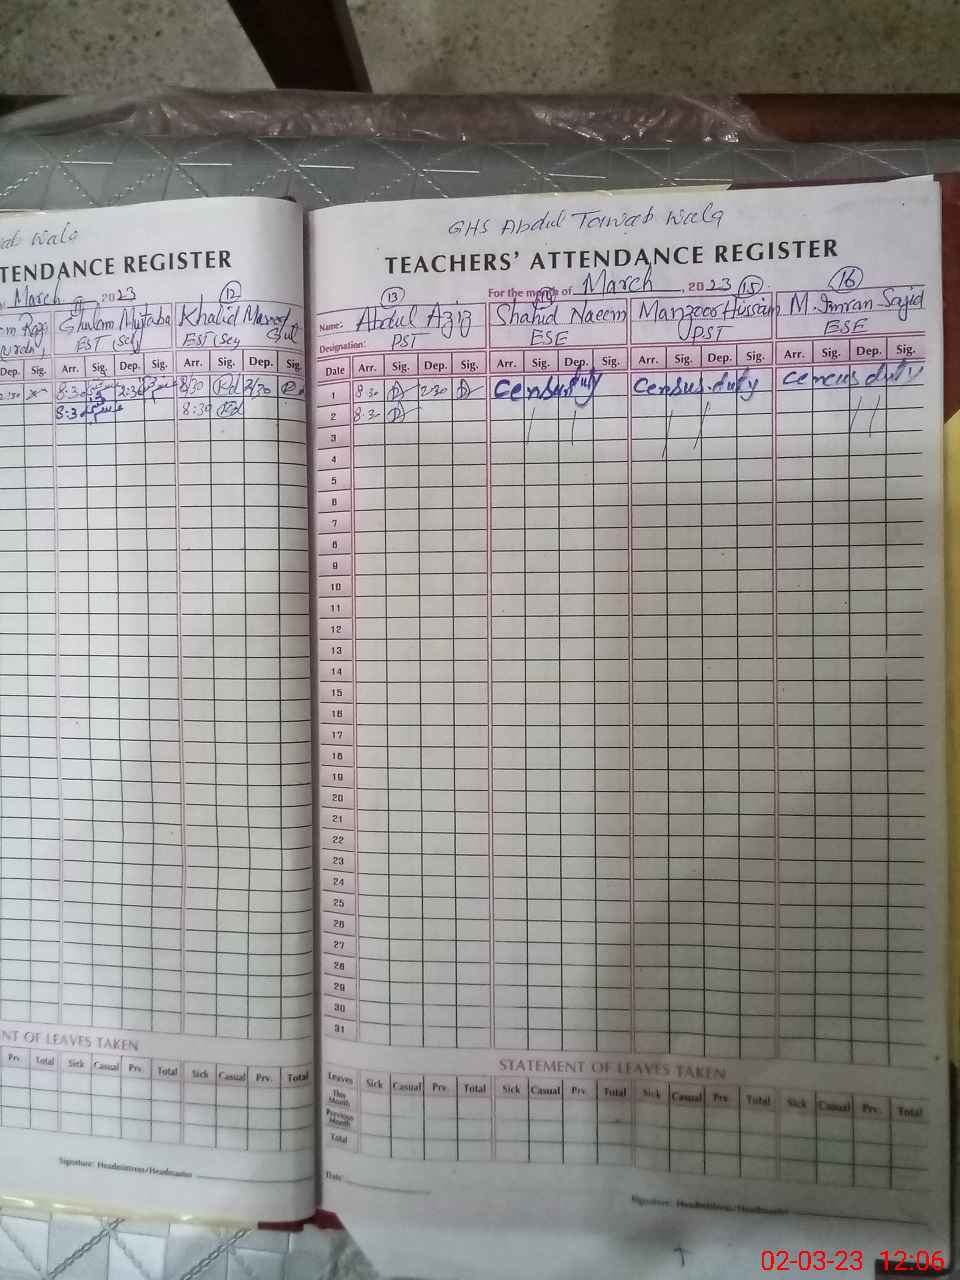 ab wala
TENDANCE REGISTER
March 2023
12
Ghulam Mujtaba
EST (Se)
Khalid Masood Gul
EST (Sey
Dep. Sig. Arr. Sig. Dep. Sig. Arr. Sig. Dep. Sig.
2:30 8:30 2:30 8/30 Kd 2/30
8:30 8:30 Kd
NT OF LEAVES TAKEN
Prv. Total Sick Casual Prv. Total Sick Casual Prv. Total
Signature: Headmistress/Headmaster
GHS Abdul Tawab Wala
TEACHERS' ATTENDANCE REGISTER
For the month of March, 2023
13 14 15 16
Name: Abdul Aziz Shahid Naeem Manzoor Hussain M. Imran Sajid
Designation: PST ESE PST ESE
Date Arr. Sig. Dep. Sig. Arr. Sig. Dep. Sig. Arr. Sig. Dep. Sig. Arr. Sig. Dep. Sig.
1 8:30 2:30 Census duty Census duty Cencus duty
2 8:30
3
4
5
6
7
8
9
10
11
12
13
14
15
16
17
18
19
20
21
22
23
24
25
26
27
28
29
30
31
STATEMENT OF LEAVES TAKEN
Leaves Sick Casual Prv. Total Sick Casual Prv. Total Sick Casual Prv. Total Sick Casual Prv. Total
This Month
Previous Month
Total
Date:
Signature: Headmistress/Headmaster
02-03-23 12:06